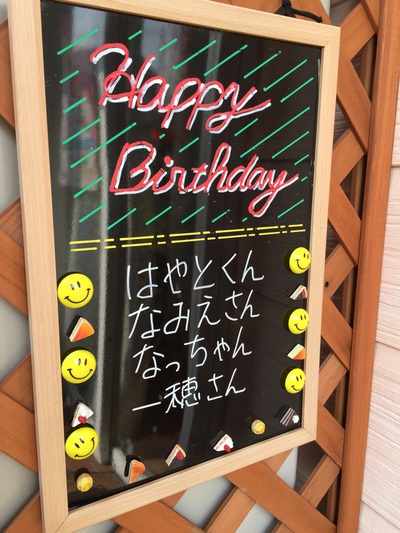 Happy
Birthday
はやとくん
なみえさん
なっちゃん
一穂さん